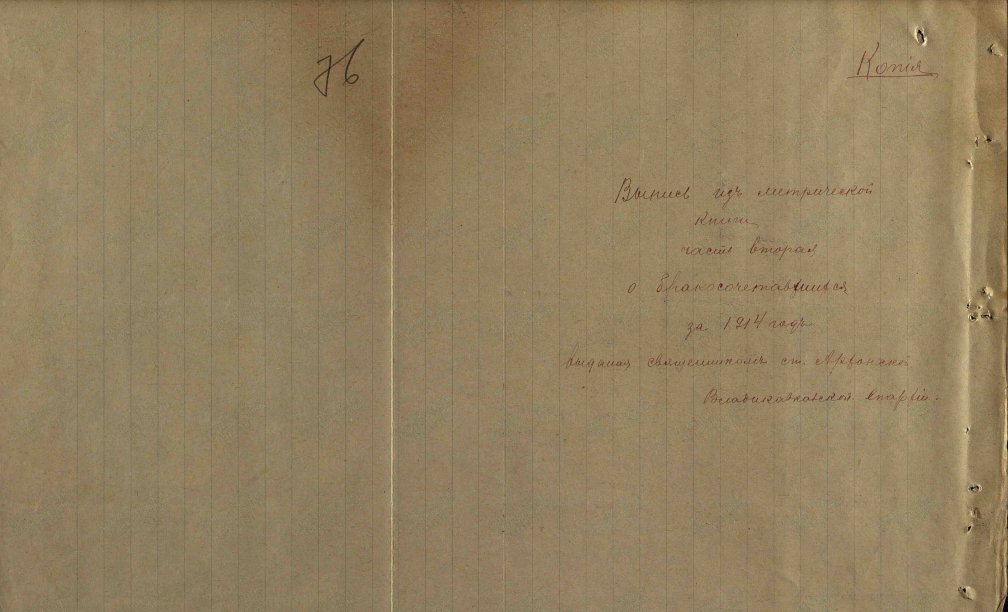 76
Копія
Выпись изъ метрической
книги
часть вторая
о бракосочетавшихся
за 1914 годъ
выданая священникомъ ст. Ардонской
Владикавказской Епархіи.